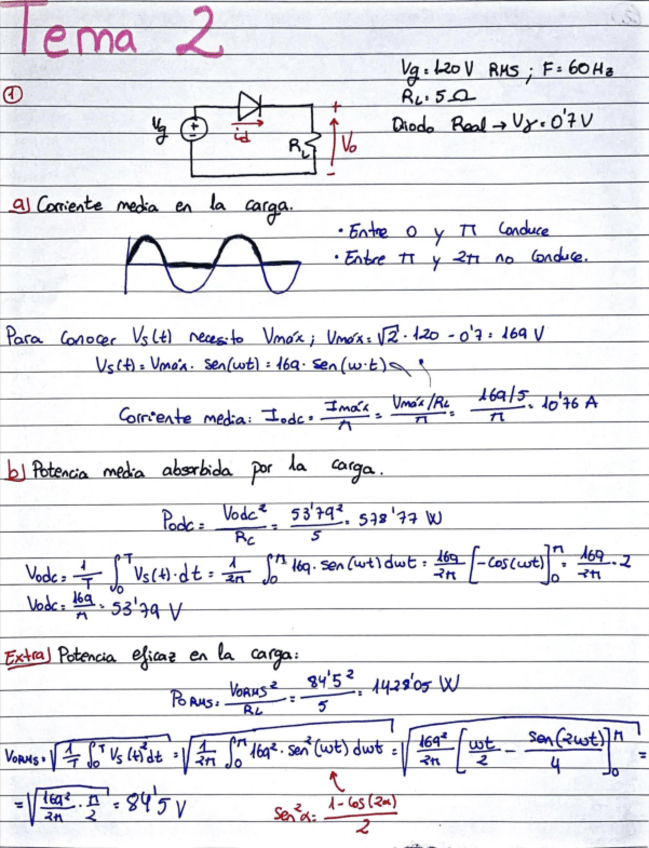 Tema 2
Vg = 120 V RMS ; F = 60 Hz
RL = 5 Ω
Diodo Real → Vγ = 0'7 V
①
Vg
id
RL
+
Vo
-
a) Corriente media en la carga.
• Entre 0 y π Conduce
• Entre π y 2π no Conduce.
Para conocer Vs(t) necesito Vmáx ; Vmáx = √2 · 120 - 0'7 = 169 V
Vs(t) = Vmáx · sen(wt) = 169 · sen(w·t)
Corriente media: Iodc = Imáx/π = (Vmáx/RL)/π = (169/5)/π = 10'76 A
b) Potencia media absorbida por la carga.
Podc = Vodc²/RL = 53'79²/5 = 578'77 W
Vodc = 1/T ∫₀ᵀ Vs(t)·dt = 1/2π ∫₀^π 169 · sen(wt) dwt = 169/2π [-cos(wt)]₀^π = 169/2π · 2
Vodc = 169/π = 53'79 V
Extra) Potencia eficaz en la carga:
PoRMS = VoRMS²/RL = 84'5²/5 = 1428'05 W
VoRMS = √(1/T ∫₀ᵀ Vs(t)² dt) = √(1/2π ∫₀^π 169² · sen²(wt) dwt) = √(169²/2π [wt/2 - sen(2wt)/4]₀^π) =
= √(169²/2π · π/2) = 84'5 V
sen²α = (1 - cos(2α))/2